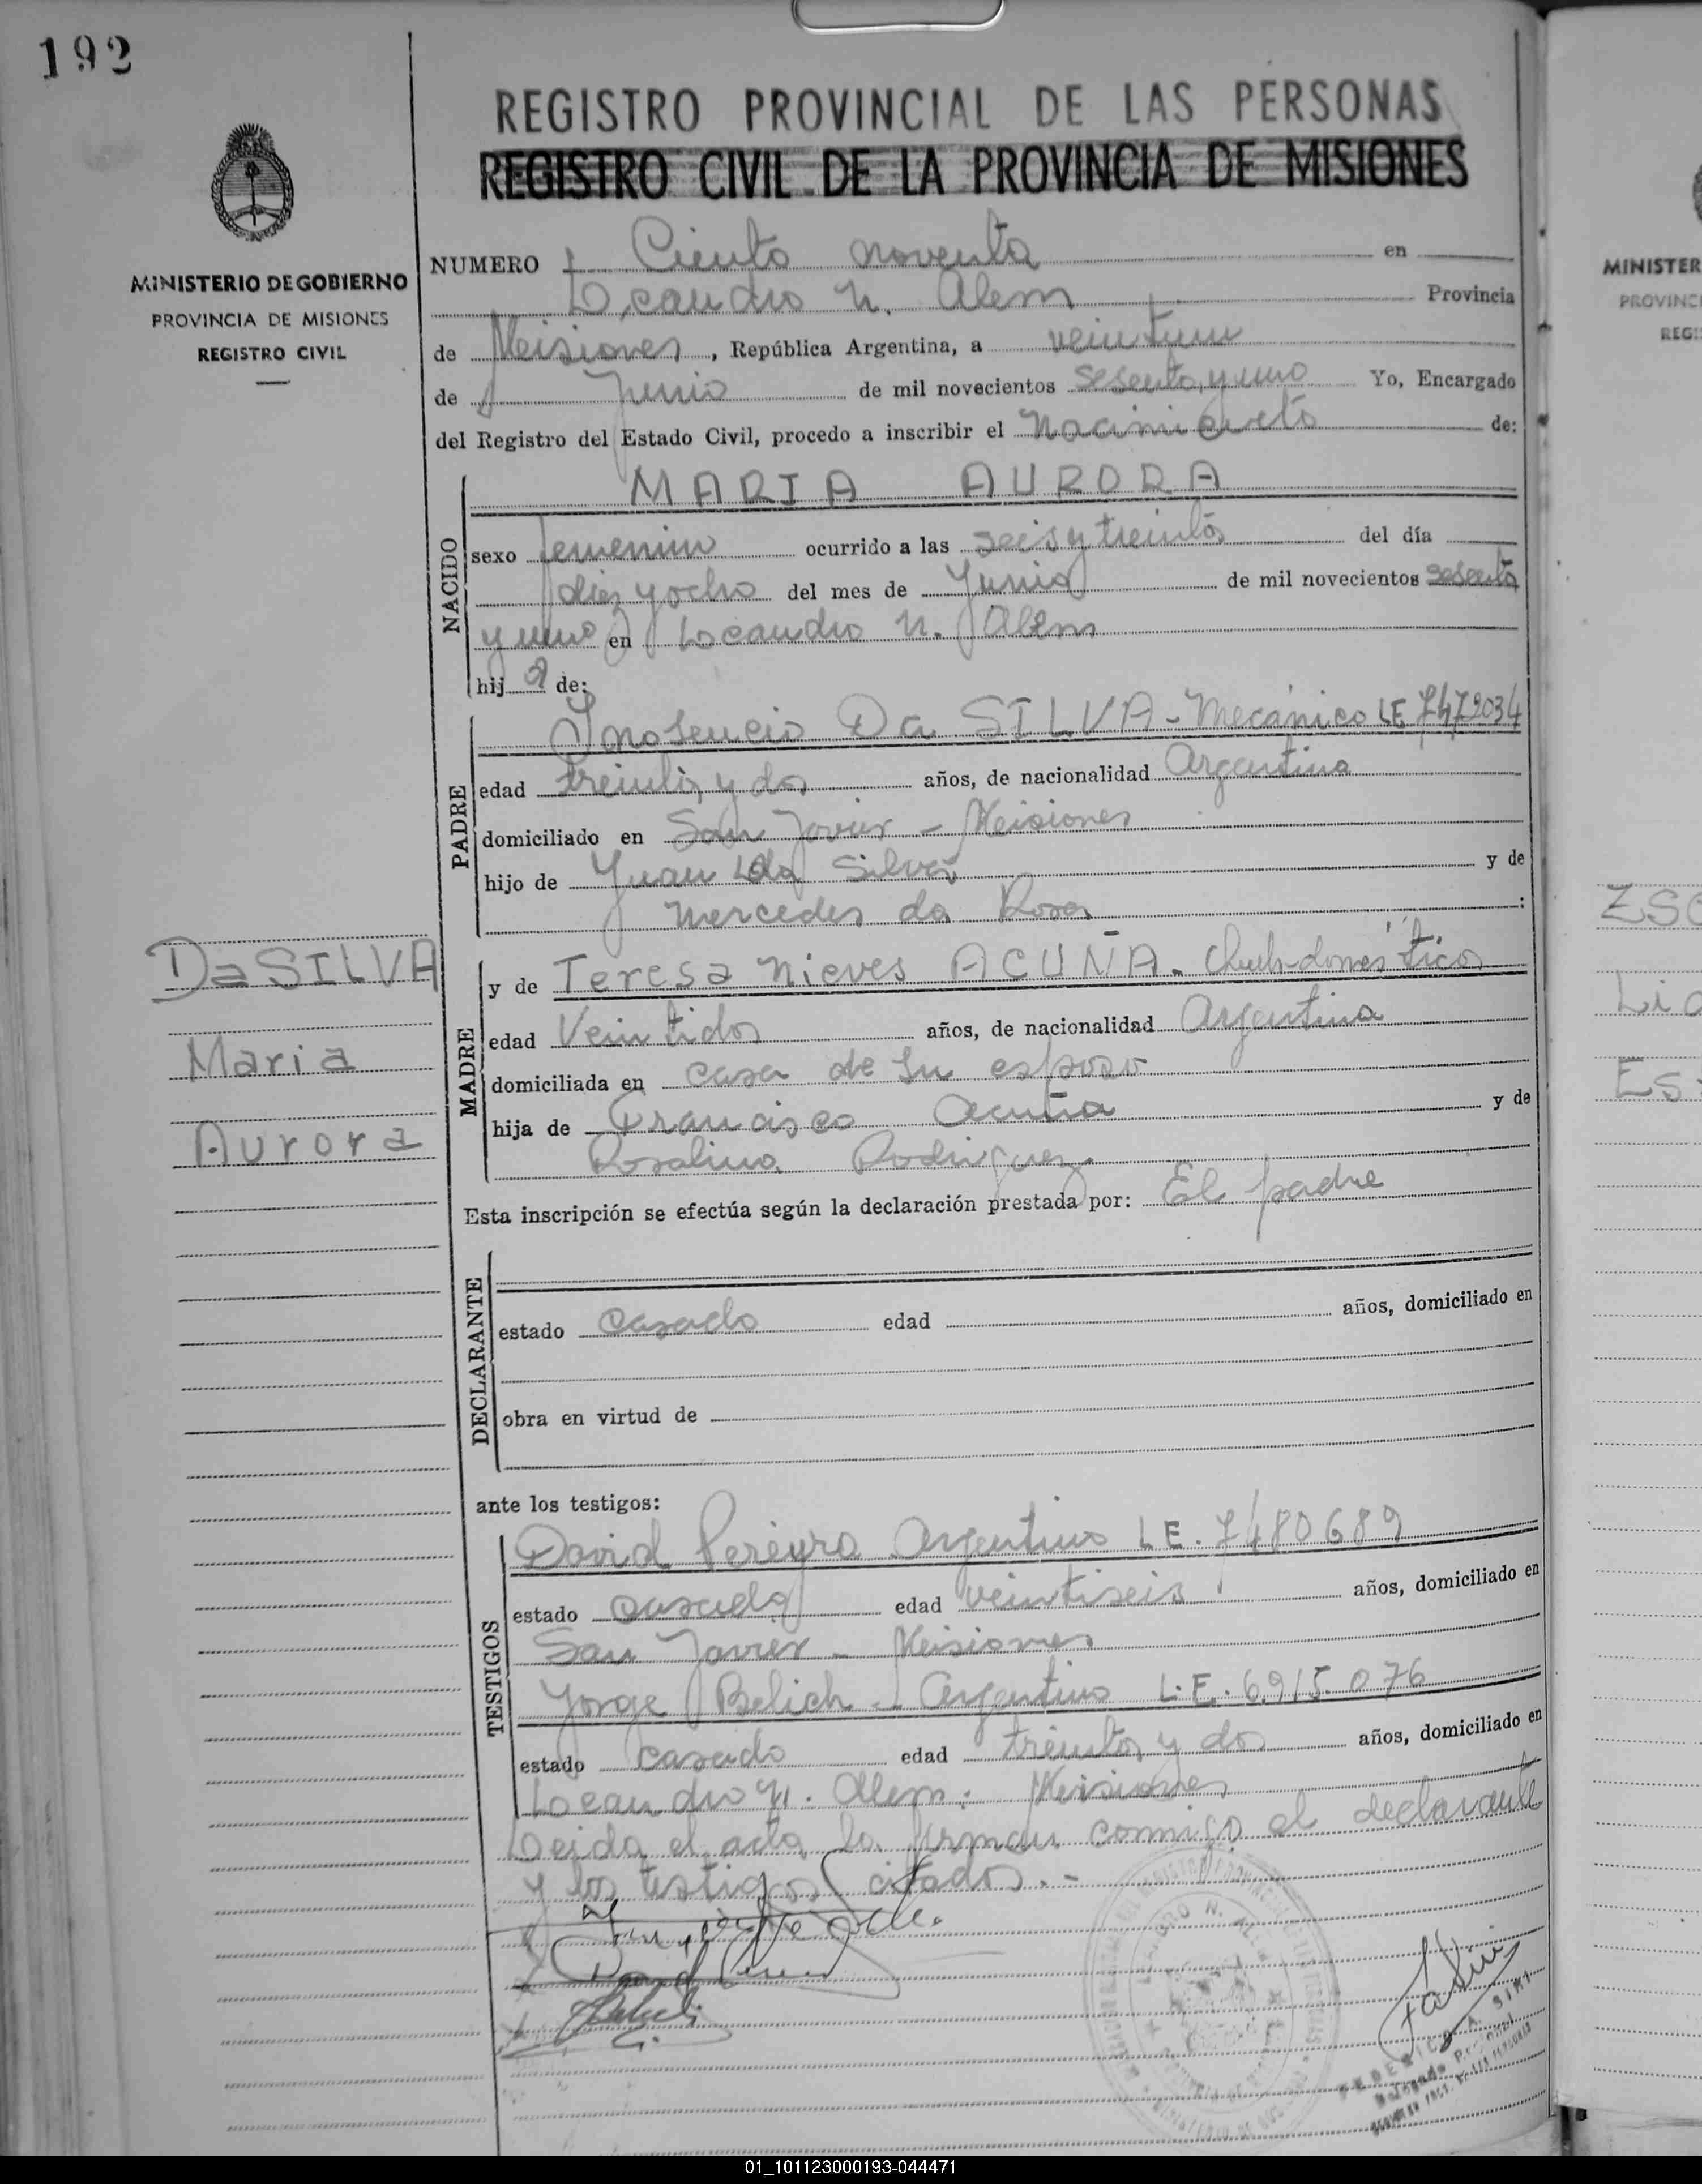 192
REGISTRO PROVINCIAL DE LAS PERSONAS
REGISTRO CIVIL DE LA PROVINCIA DE MISIONES
MINISTERIO DE GOBIERNO
PROVINCIA DE MISIONES
REGISTRO CIVIL
NUMERO Ciento noventa en
Leandro N. Alem Provincia
de Misiones, República Argentina, a veintiun
de Junio de mil novecientos sesenta y uno Yo, Encargado
del Registro del Estado Civil, procedo a inscribir el Nacimiento de:
NACIDO
MARIA AURORA
sexo femenino ocurrido a las seis y treinta del día
diez y ocho del mes de Junio de mil novecientos sesenta
y uno en Leandro N. Alem
hija de:
PADRE
Inosencio Da SILVA - Mecánico LE 7472034
edad treinta y dos años, de nacionalidad Argentina
domiciliado en San Javier - Misiones
hijo de Juan da Silva y de
Mercedes da Rosa :
DaSILVA
Maria
Aurora
MADRE
y de Teresa Nieves ACUÑA. Queh-domésticos
edad Veintidos años, de nacionalidad Argentina
domiciliada en casa de su esposo
hija de Francisco Acuña y de
Rosalina Rodriguez
Esta inscripción se efectúa según la declaración prestada por: El padre
DECLARANTE
estado casado edad años, domiciliado en
obra en virtud de
ante los testigos:
TESTIGOS
David Pereyra Argentino LE. 7480689
estado casado edad veintiseis años, domiciliado en
San Javier - Misiones
Jorge Belich - Argentino L.E. 6.915.076
estado casado edad treinta y dos años, domiciliado en
Leandro N. Alem. Misiones
Leida el acta la firman conmigo el declarante
y los testigos citados.-
MINISTER
PROVINC
REGI
ZSC
Lic
Es
01_101123000193-044471